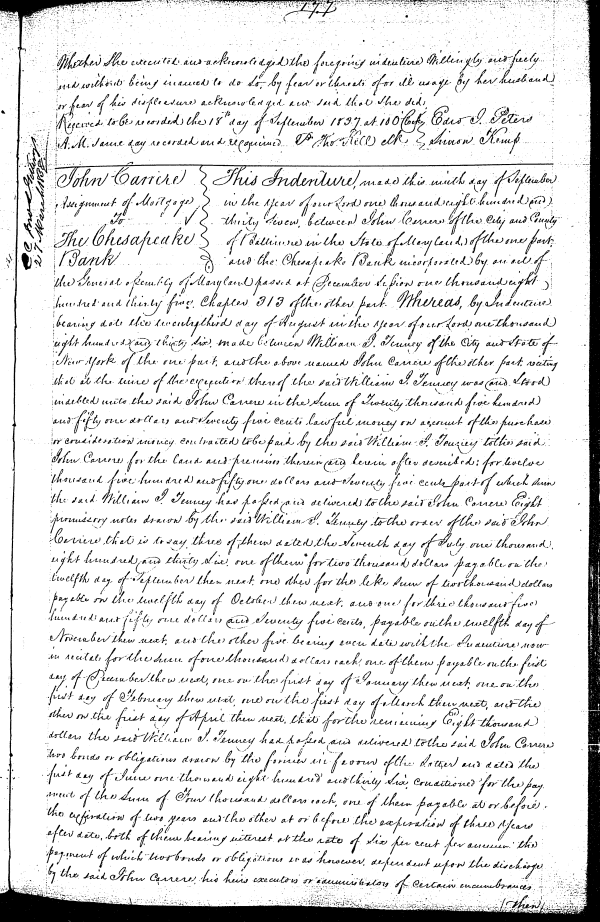 177
Whether She executed and acknowledged the foregoing indenture Willingly and freely
and without being induced to do so, by fear or threats of or ill usage by her husband
or fear of his displeasure acknowledged and said that She did.
Received to be recorded the 18th day of September 1837 at 10 O Clock Edwd J. Peters
A.M. same day recorded and reexamined Pr Tho. Kell Clk Simon Kemp
John Carrere
Assignment of Mortgage
To
The Chesapeake
Bank
This Indenture, made this ninth day of September
in the year of our Lord one thousand eight hundred and
thirty Seven, between John Carrere of the City and County
of Baltimore in the State of Maryland, of the one part
and the Chesapeake Bank incorporated by an act of
the General assembly of Maryland passed at December Session one thousand eight
hundred and thirty five, Chapter 313 of the other part. Whereas, by Indenture
bearing date the twenty third day of August in the year of our Lord one thousand
eight hundred and thirty Six, made between William I. Tenney of the City and State of
New York of the one part, and the above named John Carrere of the other part, reciting
that at the time of the execution thereof the said William I. Tenney was and Stood
indebted unto the said John Carrere in the Sum of Twenty thousand five hundred
and fifty one dollars and Seventy five cents lawful money on account of the purchase
or consideration money contracted to be paid by the said William I. Tenney to the said
John Carrere for the land and premises therein and herein after described; for twelve
thousand five hundred and fifty one dollars and Seventy five cents part of which sum
the said William I Tenney has passed and delivered to the said John Carrere Eight
promissory notes drawn by the said William I. Tenney to the order of the said John
Carrere that is to say three of them dated the Seventh day of July one thousand
eight hundred and thirty Six, one of them for two thousand dollars payable on the
twelfth day of September then next, one other for the like sum of two thousand dollars
payable on the twelfth day of October then next, and one for three thousand five
hundred and fifty one dollars and Seventy five cents, payable on the twelfth day of
November then next, and the other five bearing even date with the Indenture now
in recital for the sum of one thousand dollars each, one of them payable on the first
day of December then next, one on the first day of January then next, one on the
first day of February then next, one on the first day of March then next, and the
other on the first day of April then next, that for the remaining Eight thousand
dollars the said William I. Tenney had passed and delivered to the said John Carrere
two bonds or obligations drawn by the former in favour of the latter and dated the
first day of June one thousand eight hundred and thirty Six conditioned for the pay
ment of the Sum of Four thousand dollars each, one of them payable at or before
the expiration of two years and the other at or before the expiration of three years
after date, both of them bearing interest at the rate of Six per cent per annum the
payment of which two bonds or obligations was however, dependent upon the discharge
by the said John Carrere, his heirs executors or administrators of certain incumbrances
then